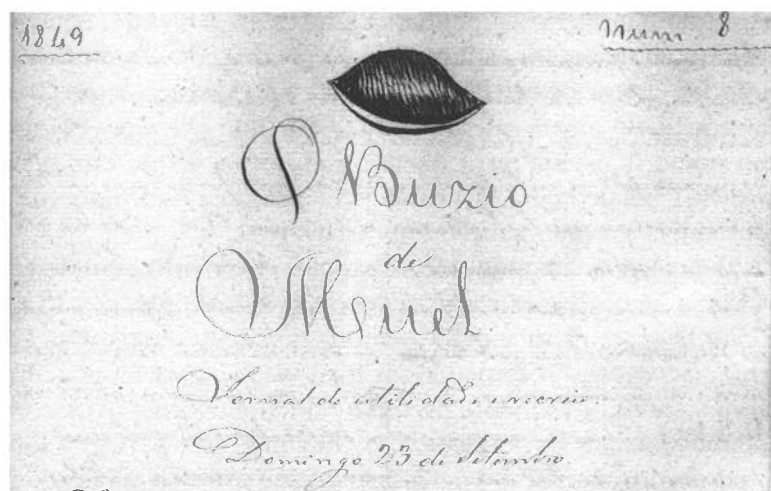 1849 Num. 8
O Buzio
de
Muel
Jornal de utilidade e recreio.
Domingo 23 de Setembro.